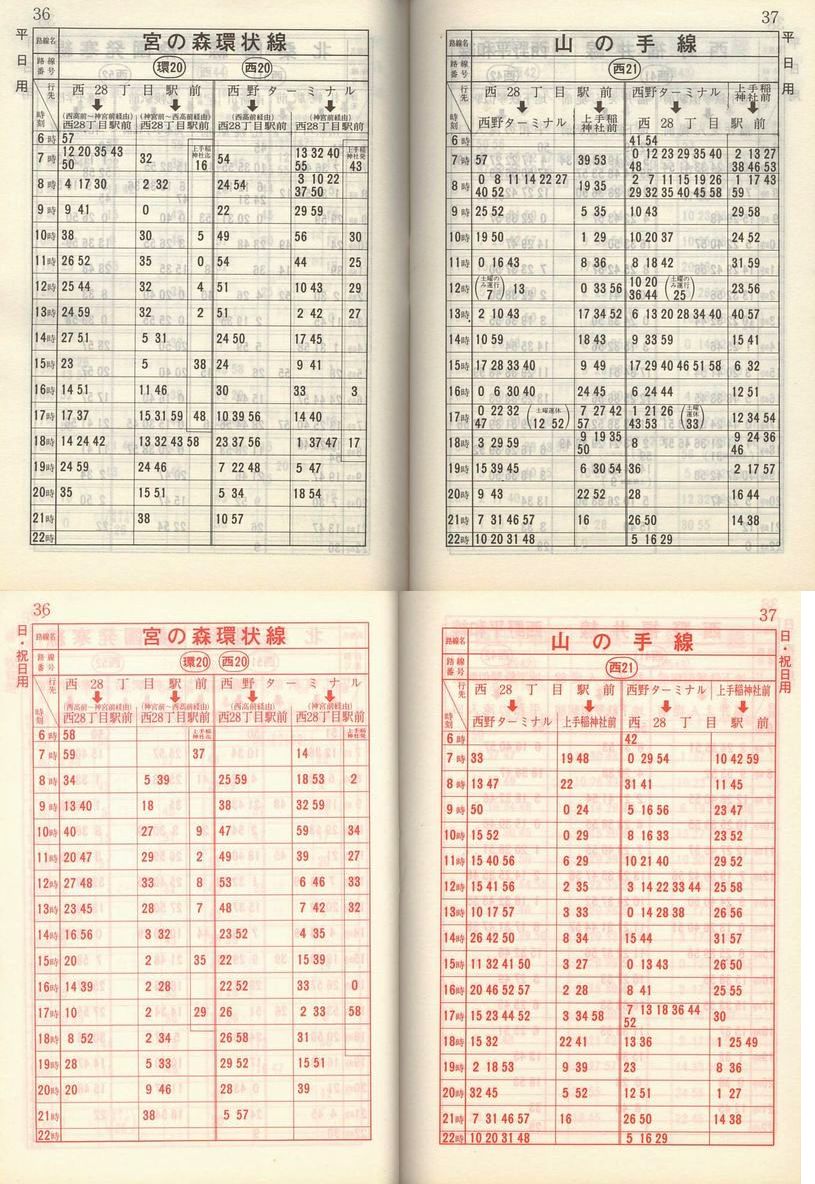 36
平日用
路線名 宮の森環状線
路線番号 環20 西20
行先 西28丁目駅前 西野ターミナル
時刻 (西高前～神宮前経由) 西28丁目駅前 (神宮前～西高前経由) 西28丁目駅前 (西高前経由) 西28丁目駅前 (神宮前経由) 西28丁目駅前
6時 57
7時 12 20 35 43 50 32 上手稲神社迄 16 54 13 32 40 55 上手稲神社発 43
8時 4 17 30 2 32 24 54 3 10 22 37 50
9時 9 41 0 22 29 59
10時 38 30 5 49 56 30
11時 26 52 35 0 54 44 25
12時 25 44 32 4 51 10 43 29
13時 24 59 32 2 51 2 42 27
14時 27 51 5 31 24 50 17 45
15時 23 5 38 24 9 41
16時 14 51 11 46 30 33 3
17時 17 37 15 31 59 48 10 39 56 14 40
18時 14 24 42 13 32 43 58 23 37 56 1 37 47 17
19時 24 59 24 46 7 22 48 5 47
20時 35 15 51 5 34 18 54
21時 38 10 57
22時
37
平日用
路線名 山の手線
路線番号 西21
行先 西28丁目駅前 西野ターミナル 上手稲神社前
時刻 西野ターミナル 上手稲神社前 西28丁目駅前
6時 41 54
7時 57 39 53 0 12 23 29 35 40 48 2 13 27 38 46 53
8時 0 8 11 14 22 27 40 52 19 35 2 7 11 15 19 26 29 32 35 40 45 58 1 17 43 59
9時 25 52 5 35 10 43 29 58
10時 19 50 1 29 10 20 37 24 52
11時 0 16 43 8 36 8 18 42 31 59
12時 (土曜のみ運行 7) 13 0 33 56 10 20 36 44 (土曜のみ運行 25) 23 56
13時 2 10 43 17 34 52 6 13 20 28 34 40 40 57
14時 10 59 18 43 9 33 59 15 41
15時 17 28 33 40 9 49 17 29 40 46 51 58 6 32
16時 0 6 30 40 24 45 6 24 44 12 51
17時 0 22 32 47 (土曜運休 12 52) 7 27 42 57 1 21 26 43 53 (土曜運休 33) 12 34 54
18時 3 29 59 9 19 35 50 8 9 24 36 46
19時 15 39 45 6 30 54 36 2 17 57
20時 9 43 22 52 28 16 44
21時 7 31 46 57 16 26 50 14 38
22時 10 20 31 48 5 16 29
36
日・祝日用
路線名 宮の森環状線
路線番号 環20 西20
行先 西28丁目駅前 西野ターミナル
時刻 (西高前～神宮前経由) 西28丁目駅前 (神宮前～西高前経由) 西28丁目駅前 (西高前経由) 西28丁目駅前 (神宮前経由) 西28丁目駅前
6時 58 上手稲神社迄 上手稲神社発
7時 59 37 14
8時 34 5 39 25 59 18 53 2
9時 13 40 18 38 32 59
10時 40 27 9 47 59 34
11時 20 47 29 2 49 39 27
12時 27 48 33 8 53 6 46 33
13時 23 45 28 7 48 7 42 32
14時 16 56 3 32 23 52 4 35
15時 20 2 35 22 15 39
16時 14 39 2 28 22 52 33 0
17時 10 2 29 26 2 33 58
18時 8 52 2 34 26 58 31
19時 28 5 33 29 52 15 51
20時 20 9 46 28 39
21時 38 5 57
22時
37
日・祝日用
路線名 山の手線
路線番号 西21
行先 西28丁目駅前 西野ターミナル 上手稲神社前
時刻 西野ターミナル 上手稲神社前 西28丁目駅前
6時 42
7時 33 19 48 0 29 54 10 42 59
8時 13 47 22 31 41 11 45
9時 50 0 24 5 16 56 23 47
10時 15 52 0 29 8 16 33 23 52
11時 15 40 56 6 29 10 21 40 29 52
12時 15 41 56 2 35 3 14 22 33 44 25 58
13時 10 17 57 3 33 0 14 28 38 26 56
14時 26 42 50 8 34 15 44 31 57
15時 11 32 41 50 3 27 0 13 43 26 50
16時 20 46 52 57 2 28 8 41 25 55
17時 15 23 44 52 3 34 58 7 13 18 36 44 52 30
18時 15 32 22 41 13 36 1 25 49
19時 2 18 53 9 39 23 8 36
20時 32 45 5 52 12 51 1 27
21時 7 31 46 57 16 26 50 14 38
22時 10 20 31 48 5 16 29